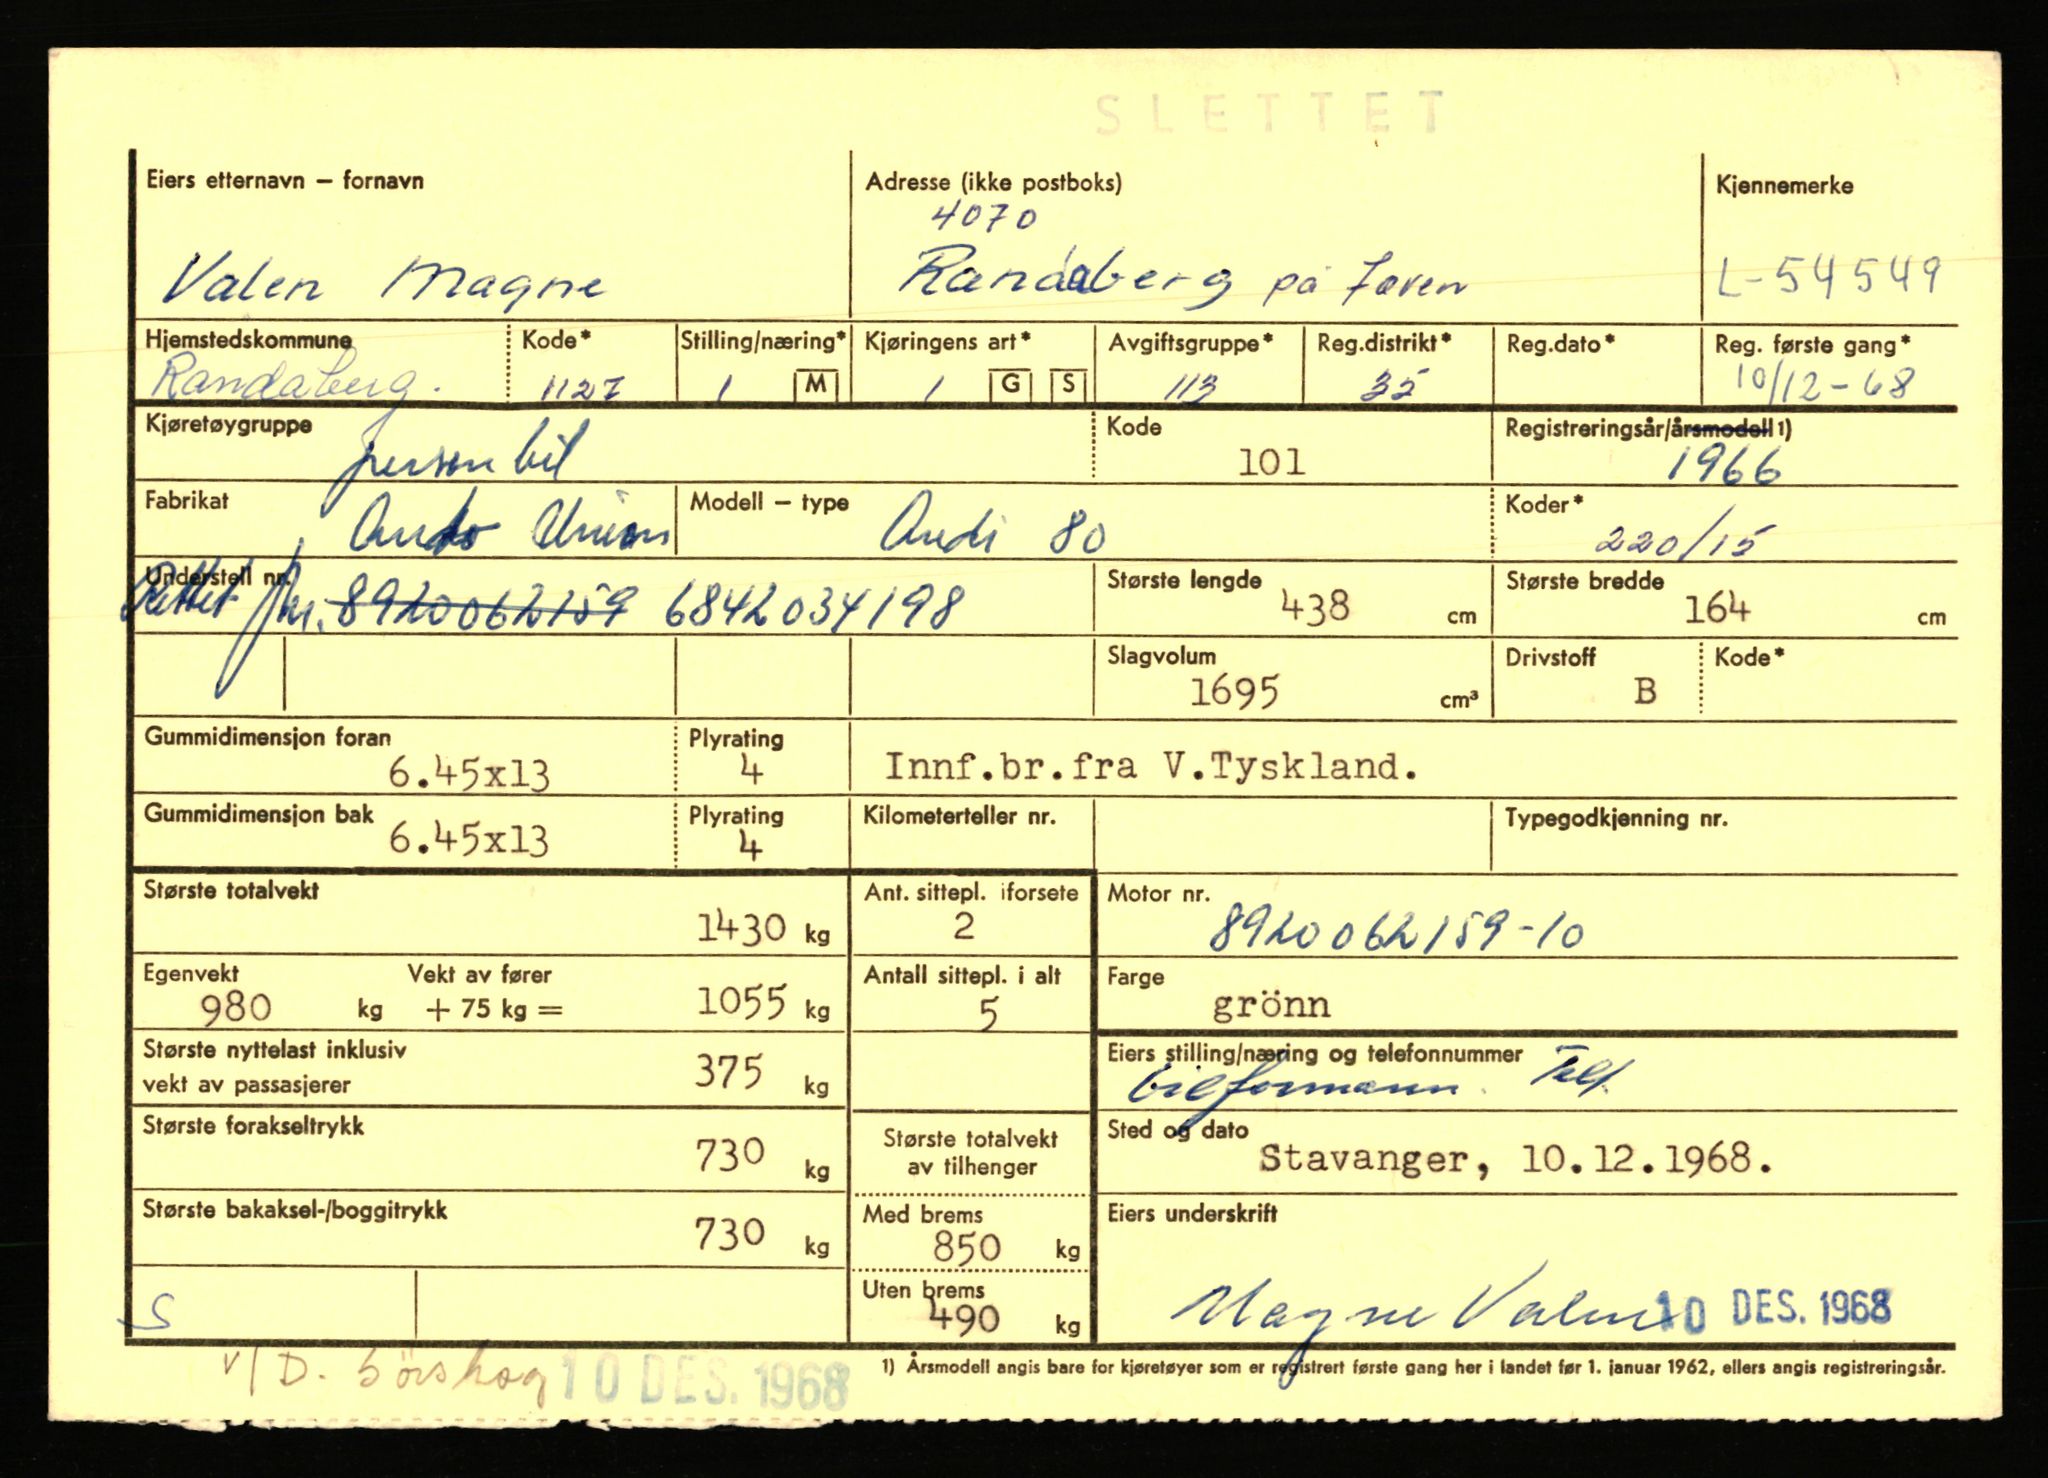 SLETTET
Eiers etternavn – fornavn
Adresse (ikke postboks)
Kjennemerke
4070
Valen Magne
Randaberg på Jæren
L-54549
Hjemstedskommune
Kode*
Stilling/næring*
Kjøringens art*
Avgiftsgruppe*
Reg.distrikt*
Reg.dato*
Reg. første gang*
Randaberg.
1127
1 M
1 G S
113
35
10/12-68
Kjøretøygruppe
personbil
Kode
101
Registreringsår/årsmodell 1)
1966
Fabrikat
Auto Union
Modell – type
Audi 80
Koder*
220/15
Understell nr.
Rettet nr. 8920062159 6842034198
Største lengde
438 cm
Største bredde
164 cm
Slagvolum
1695 cm³
Drivstoff
B
Kode*
Gummidimensjon foran
6.45x13
Plyrating
4
Innf.br.fra V.Tyskland.
Gummidimensjon bak
6.45x13
Plyrating
4
Kilometerteller nr.
Typegodkjenning nr.
Største totalvekt
1430 kg
Ant. sittepl. iforsete
2
Motor nr.
8920062159-10
Egenvekt
980 kg
Vekt av fører
+ 75 kg =
1055 kg
Antall sittepl. i alt
5
Farge
grönn
Største nyttelast inklusiv
vekt av passasjerer
375 kg
Eiers stilling/næring og telefonnummer
Telf.
Største forakseltrykk
730 kg
Største totalvekt
av tilhenger
Sted og dato
Stavanger, 10.12.1968.
Største bakaksel-/boggitrykk
730 kg
Med brems
850 kg
Eiers underskrift
Uten brems
490 kg
Magne Valen
10 DES. 1968
S
v/D. Sörskog
10 DES. 1968
1) Årsmodell angis bare for kjøretøyer som er registrert første gang her i landet før 1. januar 1962, ellers angis registreringsår.